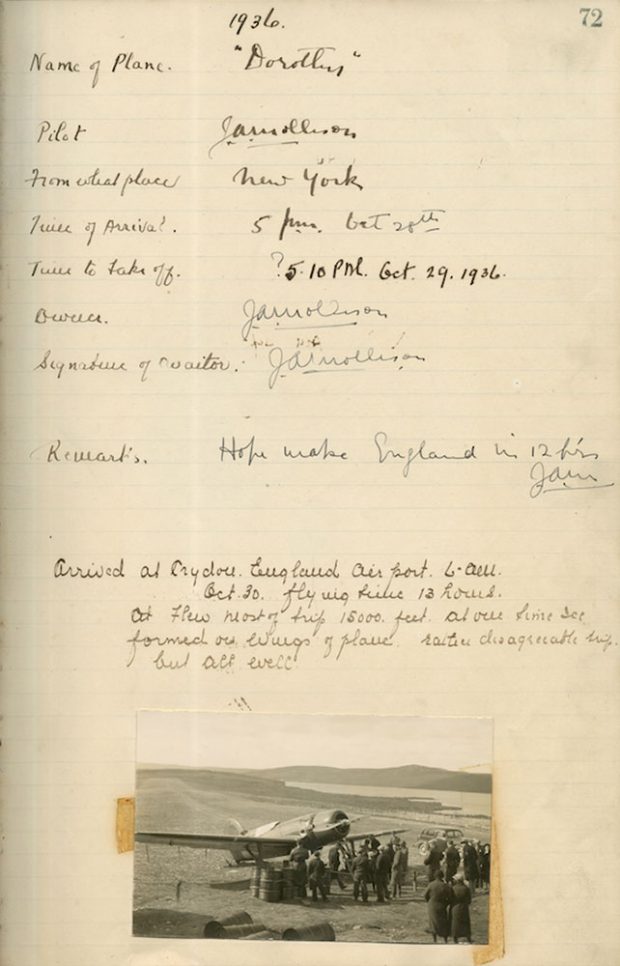 1936.
72
Name of Plane. "Dorothy"
Pilot JAMollison
From what place New York
Time of Arrival. 5 p.m. Oct 28th
Time to take off. ?5.10 P.M. Oct. 29. 1936.
Owner. JAMollison
Signature of Visitor. JAMollison
Remarks. Hope make England in 12 hrs
JAM
Arrived at Crydon. England Air port. 6-am.
Oct. 30. flying time 13 hours.
At Flew most of trip 15000. feet. at one time Ice
formed on Wings of plane. rather disagreeable trip.
but all well